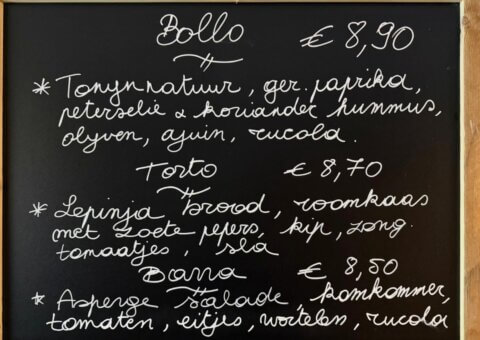 Bollo € 8,90
* Tonyn natuur, ger. paprika,
peterselie & koriander hummus,
olyven, ajuin, rucola.
Torto € 8,70
* Lepinja brood, roomkaas
met zoete pepers, kip, zong.
tomaatjes, sla
Bana € 8,50
* Asperge Salade, komkommer,
tomaten, eitjes, wortelen, rucola